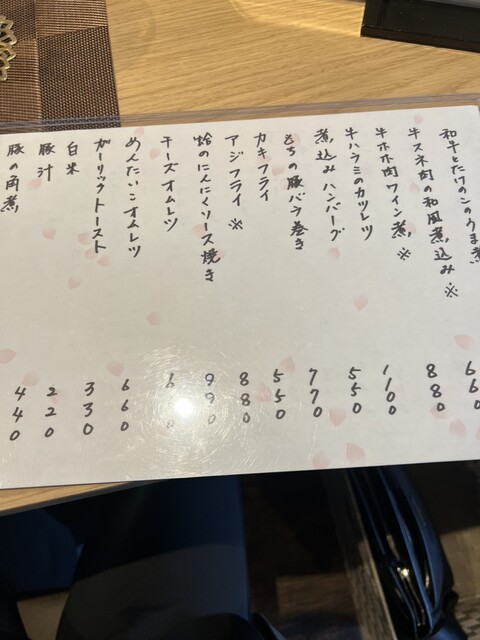 和牛とたけのこのうま煮
牛スネ肉の和風煮込み※
牛ホホ肉ワイン煮※
牛ハラミのカツレツ
煮込みハンバーグ
もちの豚バラ巻き
カキフライ
アジフライ ※
蛤のにんにくソース焼き
チーズオムレツ
めんたいこオムレツ
ガーリックトースト
白米
豚汁
豚の角煮
660
880
1100
550
770
550
880
990
660
330
220
440